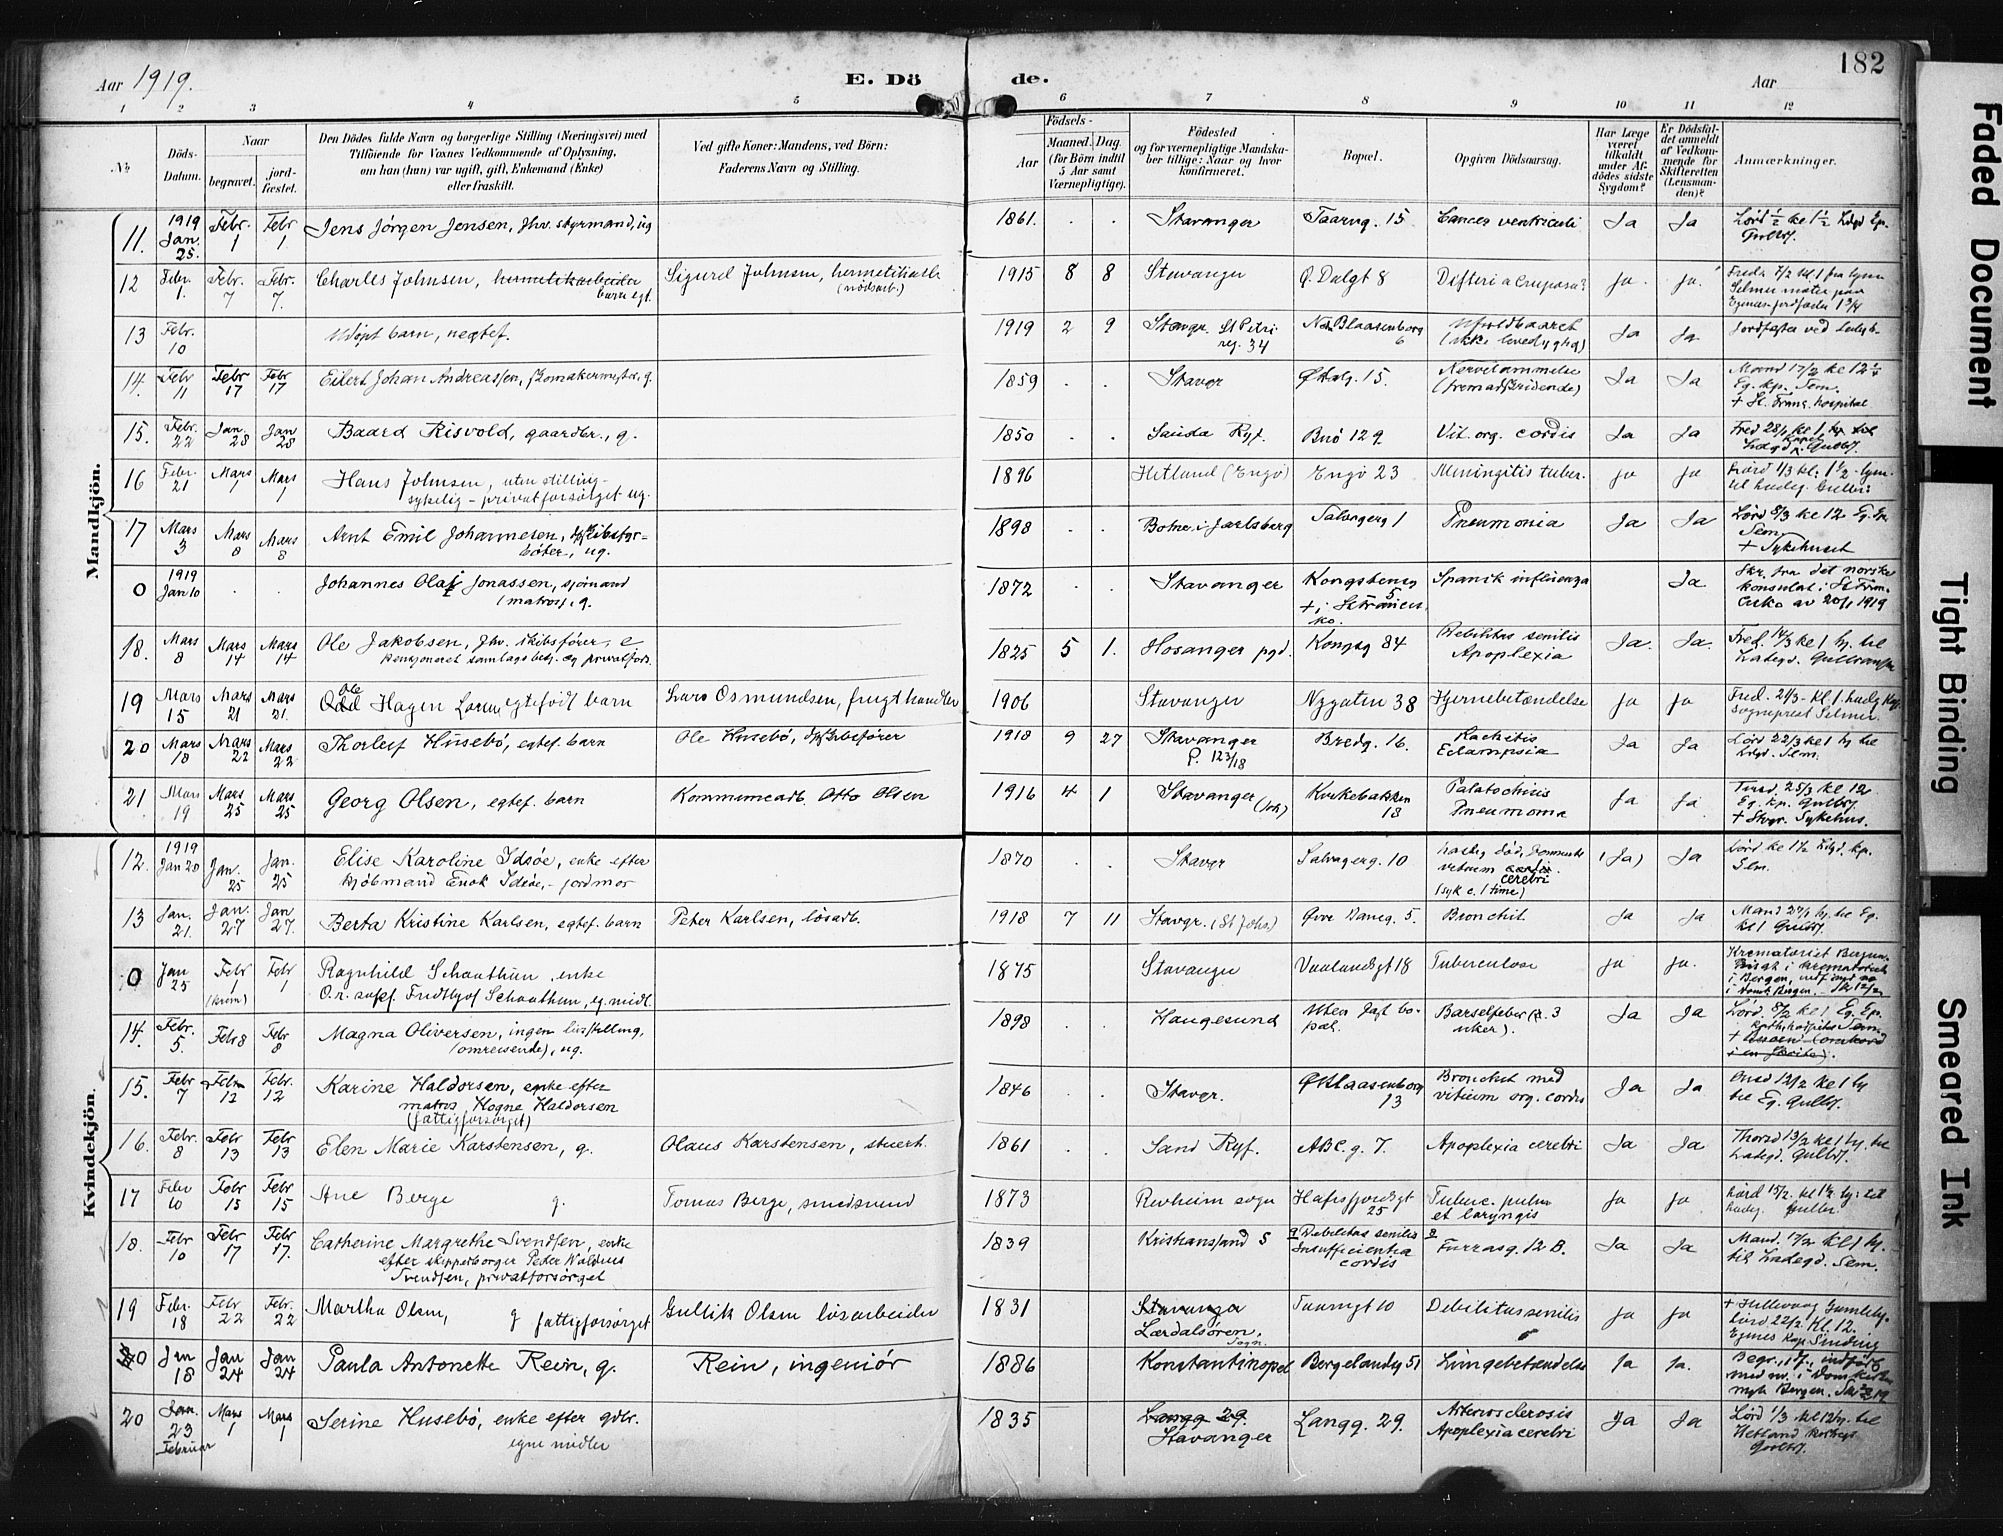 Aar 1919. E. Dö de. Aar 182
1 2 3 4 5 6 7 8 9 10 11 12
No. Döds-Datum. Naar begravet. jord-fæstet. Den Dödes fulde Navn og borgerlige Stilling (Næringsvei) med Tilföiende for Voxnes Vedkommende af Oplysning, om han (hun) var ugift, gift, Enkemand (Enke) eller fraskilt. Ved gifte Koner: Mandens, ved Börn: Faderens Navn og Stilling. Födsels- Aar Maaned. Dag. (for Börn indtil 5 Aar samt Værnepligtige). Födested og for værnepligtige Mandskaber tillige: Naar og hvor konfirmeret. Bopæl. Opgiven Dödsaarsag. Har Læge været tilkaldt under Afdödes sidste Sygdom? Er Dödsfaldet anmeldt af Vedkommende for Skifteretten (Lensmanden)? Anmærkninger.
Mandkjön.
11. 1919 Jan. 25. Febr. 1 Febr 1 Jens Jörgen Jensen, fhv. styrmand, ug 1861. Stavanger Taarng. 15 Cancer ventriculi Ja Ja
12 Febr. 1. Febr. 7 Febr. 7. Charles Johnsen, hermetikarbeider barn egt. Sigurd Johnsen, hermetikarb. (nödsarb.) 1915 8 8 Stavanger Ø. Dalgt 8 Difteri a Cruposa? ja ja.
13 Febr. 10 Udöpt barn, uegtef. 1919 2 9 Stavgr. St Petri reg. 34 Blaasenborg 6 Ufuldbaaret (ikke levedygtig) Ja Ja Jordfæstet ved
14. Febr 11 Febr 17 Febr 17 Eilert Johan Andreassen, skomakermester, g. 1859 Stavgr Østvg. 15. Nervelammelse (fremadskridende) Ja Ja Mand 17/2 kl 12 1/2 Eg. kp. Sem. + St. Frans. hospital
15. Febr. 22 Jan. 28 Jan 28 Baard Risvold, gaardbr., g. 1850 Sauda Ryf. Buö 129 Vit. org. cordis Ja Ja Fred 28/1 kl 1
16 Febr. 21 Mars 1 Mars 1 Hans Johnsen, uten stilling - sykelig - privatforsörget ug. 1896 Hetland (Engö) Engö 23 Meningitis tuber. ja ja
17 Mars 3 Mars 8 Mars 8 Arnt Emil Johannesen, skibsfyrböter, ug. 1898 Botne i Jarlsberg Salvagerg 1 Pneumonia Ja Ja Lörd 8/3 kl 12 Eg. kp. Sem. + Sykehuset
0 1919 Jan 10 Johannes Olai Jonassen, sjömand (matros), g. 1872 Stavanger Kongsteinsg 5 + i St. Francisko. Spansk influenza Ja Skr. fra det norske konsulat i St. Francisko av 20/1 1919
18. Mars 8 Mars 14 Mars 14 Ole Jakobsen, fhv. skibsförer, e pensjoneret samlagsbetj. og privatfors. 1825 5 1. Hosanger pgd. Kongsg 84 Debilitas senilis Apoplexia Ja. Ja. Fred. 14/3 kl 1
19 Mars 15 Mars 21 Mars 21. Ole Hagen Larsen egtefödt barn Lars Osmundsen, frugthandler 1906 Stavanger Nygaten 38 Hjernebetændelse ja ja Fred. 21/3 kl. 1 sogneprest Selmer.
20 Mars 18 Mars 22 Mars 22 Thorleif Husebö, egtef. barn Ole Husebö, skibsförer 1918 9 27 Stavanger P. 123/18 Bredg. 16. Rachitis Eclampsia Ja Ja Lörd 22/3 kl 1 hj. til Ldgd. Sem.
21. Mars 19 Mars 25 Mars 25 Georg Olsen, egtef. barn Kommunearb. Otto Olsen 1916 4 1 Stavanger (Joh) Kirkebakken 18 Pneumonia Ja Ja Tirsd. 25/3 kl 12 Eg. kp. Gulbr. + Stvgr. Sykehus.
Kvindekjön.
12. 1919 Jan 20 Jan. 25 Jan. 25 Elise Karoline Idsöe, enke efter kjöbmand Enok Idsöe, - jordmor 1870 Stavgr Salvagerg. 10 hastig död, vitium cerebri (syk c. 1 time) (Ja) Ja Lörd kl 1 1/2 Ldgd. kp. Sem.
13 Jan. 21. Jan. 27 Jan 27. Berta Kristine Karlsen, egtef. barn Peter Karlsen, lösarb. 1918 7 11 Stavgr. (St Johs.) Övre Daneg. 5. Bronchit Ja Ja Mand 27/1 hj. til Eg. kl 1 Gulbr.
0 Jan 25 Febr 1 (krem) Febr 1 Ragnhild Schaathun enke O.r. sakf. Fridthjof Schaathun, eg. midl. 1875 Stavanger Vaalandsgt 18 Tuberculose ja ja. Krematoriet Bergen.
14. Febr. 5. Febr 8 Febr 8 Magna Oliversen, ingen livsstilling, (omreisende), ug. 1898 Haugesund Uten fast bopæl. Barselfeber (3 uker). Ja Ja Lörd. 8/2 kl 1 Eg. kp.
15. Febr 7 Febr 12 Febr. 12 Karine Haldorsen, enke efter matros Hogne Haldorsen (fattigforsörget) 1846 Stavgr. Ø Blaasenborg 13 Bronchit med vitium org. cordis Ja Ja Onsd 12/2 kl 1 hj til Eg. Gulbr.
16. Febr. 8 Febr 13 Febr. 13 Elen Marie Karstensen, g. Olaus Karstensen, stuert. 1861 Sand Ryf. ABC. g. 7. Apoplexia cerebri Ja Ja Thorsd 13/2 kl 1 hj. til Ladegd. Gulbr.
17 Febr 10 Febr 15 Febr 15 Ane Berge g. Tomas Berge, smedsvend 1873 Revheim sogn Hafrsfjordsgt 25 Tuberc. pulm et laryngis ja ja
18. Febr 10 Febr 17 Febr 17. Catherine Margrethe Svendsen, enke efter skipperborger Peder Svendsen, privatforsörget 1839 Kristianssand S 9 Debilitas senilis Insufficientia cordis 8 Furrasg. 12 B. Ja Ja Mand. 17/2 kl 1 hj. til Ladegd. Sem.
19 Febr. 18 Febr 22 Febr. 22 Martha Olsen, g fattigforsörget Gullik Olsen lösarbeider 1831 Stavanger Lærdalsören, Sogn. Taarngt 10 Debilitas senilis ja ja + Hillevaag Gamlehj. Lörd 22/2 Kl. 12. Egnes Kap Sinding
0 Jan 18 Jan 24 Jan 24 Paula Antonette Rein, g. Rein, ingeniör 1886 Konstantinopel Bergelandsg 51 Lungebetændelse Ja Ja.
20 Jan. 23 Februar Mars 1 Mars 1 Serine Husebö, enke efter gdbr. egne midler 1835 Langg 29. Stavanger Langg. 29. Arteriosclerosis Apoplexia cerebri Ja Ja Lörd 1/3 kl 12 hj. til Hetland
Faded Document
Tight Binding
Smeared Ink